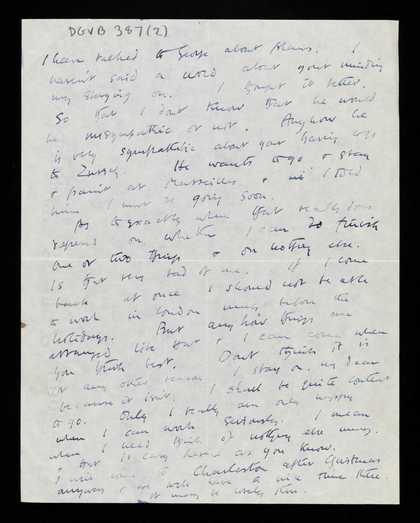 DGVB 387(2)
I have talked to George about Athens. I
haven't said a word about your minding
my staying on. I forgot to better.
So that I don't know that he would
be unsympathetic or not. Anyhow he
is very sympathetic about your having to
to He wants to go & stay
& paint at Marseilles & I told
him I must be going soon.
As to exactly when that really does
depend on whether I can finish
one or two things & on nothing else.
Is that very bad of me. If I come
back at once I should not be able
to work in London before the
holidays. But anyhow things are
arranged like that & I can come when
you think best. Dont think it is
for any other reason I stay on, my Dear
because it isnt. I shall be quite content
to go. Only I really am only happy
when I can work seriously. I mean
when I need think of nothing else
& that is easy here as you know.
I will come to Charleston after Christmas
anyway & we will have a nice time there